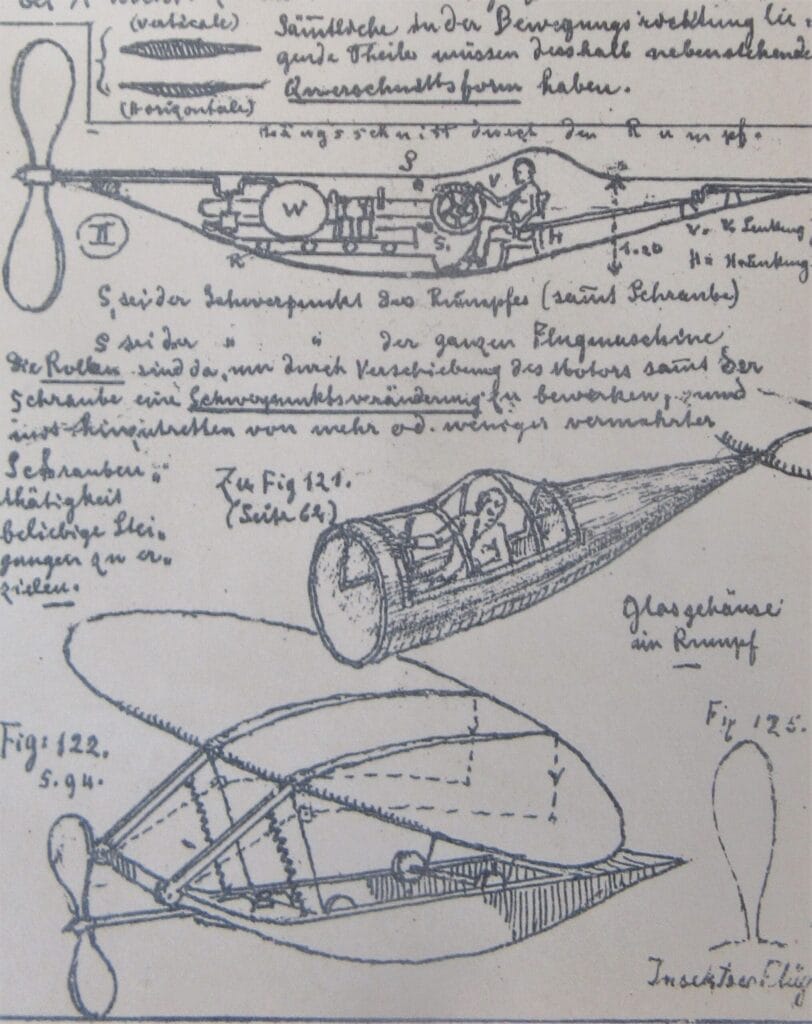 (verticale)
Sämtliche in der Bewegungsrichtung lie-
gende Theile müssen desshalb nebenstehende
Querschnittsform haben.
(Horizontale)
Längsschnitt durch den Rumpf.
S
V
W
S,
R
H
1.20
II
V = V. Lenkung,
H = H. Lenkung
S, sei der Schwerpunkt des Rumpfes (samt Schraube)
S sei der " " der ganzen Flugmaschine
Die Rollen sind da, um durch Verschiebung des Motors samt der
Schraube eine Schwerpunktsveränderung zu bewirken, und
hinzutretten von mehr od. weniger vermehrter
Schrauben-
thätigkeit
beliebige Stei-
gungen zu er-
zielen.
Zu Fig 121.
(Seite 64)
Glasgehäuse
im Rumpf
Fig: 122.
S. 94.
Fig 125.